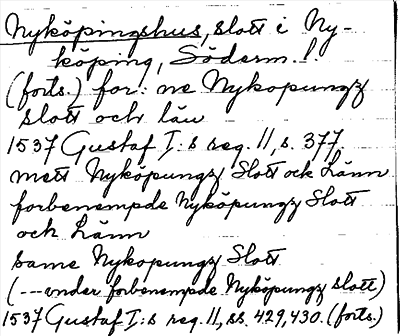 Nyköpingshus, slott i Ny-
köping, Söderm. l.
(forts.) for: ne Nykopungz
slott och län
1537 Gustaf I: s reg. 11, s. 377.
mett Nyköpungz Slott ock Länn
forbenempde Nyköpungz Slott
ock Länn
same Nykopungz Slott
(--- under forbenempde Nyköpungz slott)
1537 Gustaf I: s reg. 11, ss. 429, 430. (forts.)